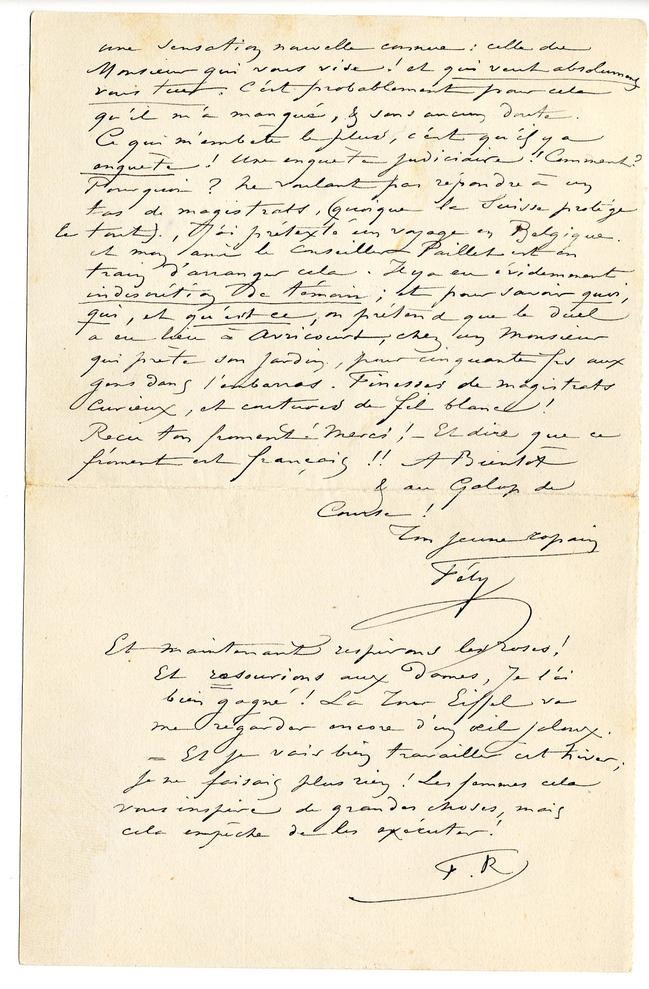 une sensation nouvelle comme : celle du
Monsieur qui vous vise ! et qui veut absolument
vous tuer. C'est probablement pour cela
qu'il m'a manqué, & sans aucun doute.
Ce qui m'embête le plus, c'est qu'il y a
enquête ! Une enquête judiciaire !! Comment ?
Pourquoi ? Ne voulant pas répondre à un
tas de magistrats, (quoique la Suisse protège
le tout)., j'ai prétexté un voyage en Belgique.
et mon ami le Conseiller Paillet est en
train d'arranger cela. Il y a eu évidemment
indiscrétion de témoin ; et pour savoir quoi,
qui, et qu'est ce, on prétend que le duel
a eu lieu à Avricourt, chez un Monsieur
qui prête son jardin, pour cinquante frs aux
gens dans l'embarras. Finesses de magistrats
curieux, et coutures de fil blanc !
Reçu ton froment ! Merci ! – Et dire que ce
froment est français !! A Bientôt
& au Galop de
Course !
Ton jeune copain
Fély
Et maintenant respirons les roses !
Et resourions aux Dames, Je l'ai
bien gagné ! La Tour Eiffel va
me regarder encore d'un œil jaloux.
= Et je vais bien travailler cet hiver,
je ne faisais plus rien ! Les femmes cela
vous inspire de grandes choses, mais
cela empêche de les exécuter !
F. R